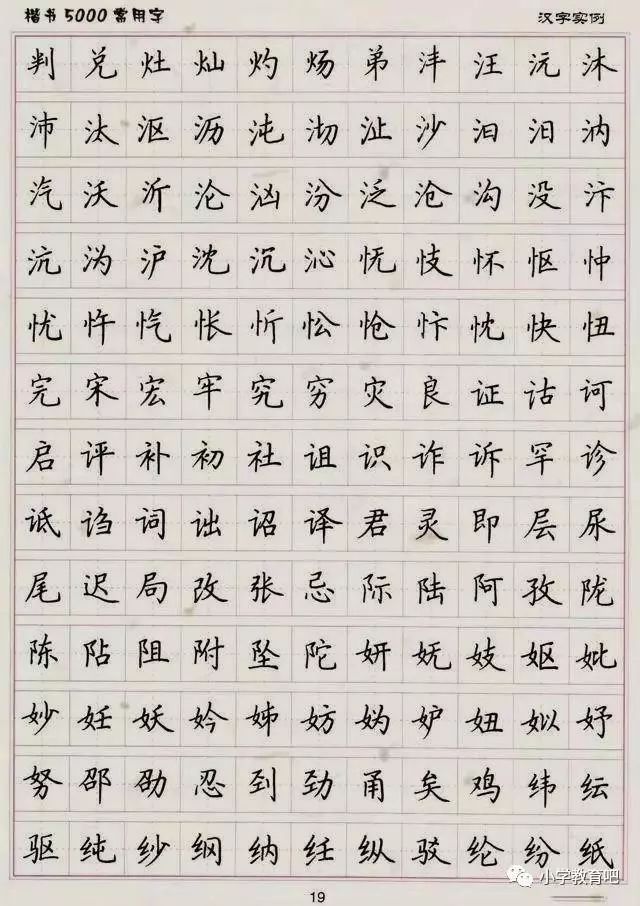 楷书5000常用字 汉字实例
判兑灶灿灼炀弟沣汪沅沐
沛汰沤沥沌沏沚沙汩汨汭
汽沃沂沦汹汾泛沧沟没汴
沆沩沪沈沉沁怃忮怀怄忡
忧忤忾怅忻忪怆忭忱快忸
完宋宏牢究穷灾良证诂诃
启评补初社诅识诈诉罕诊
诋诌词诎诏译君灵即层尿
尾迟局改张忌际陆阿孜陇
陈阽阻附坠陀妍妩妓妪妣
妙妊妖妗姊妨妫妒妞姒妤
努邵劭忍刭劲甬矣鸡纬纭
驱纯纱纲纳纴纵驳纶纷纸
小学教育吧
19